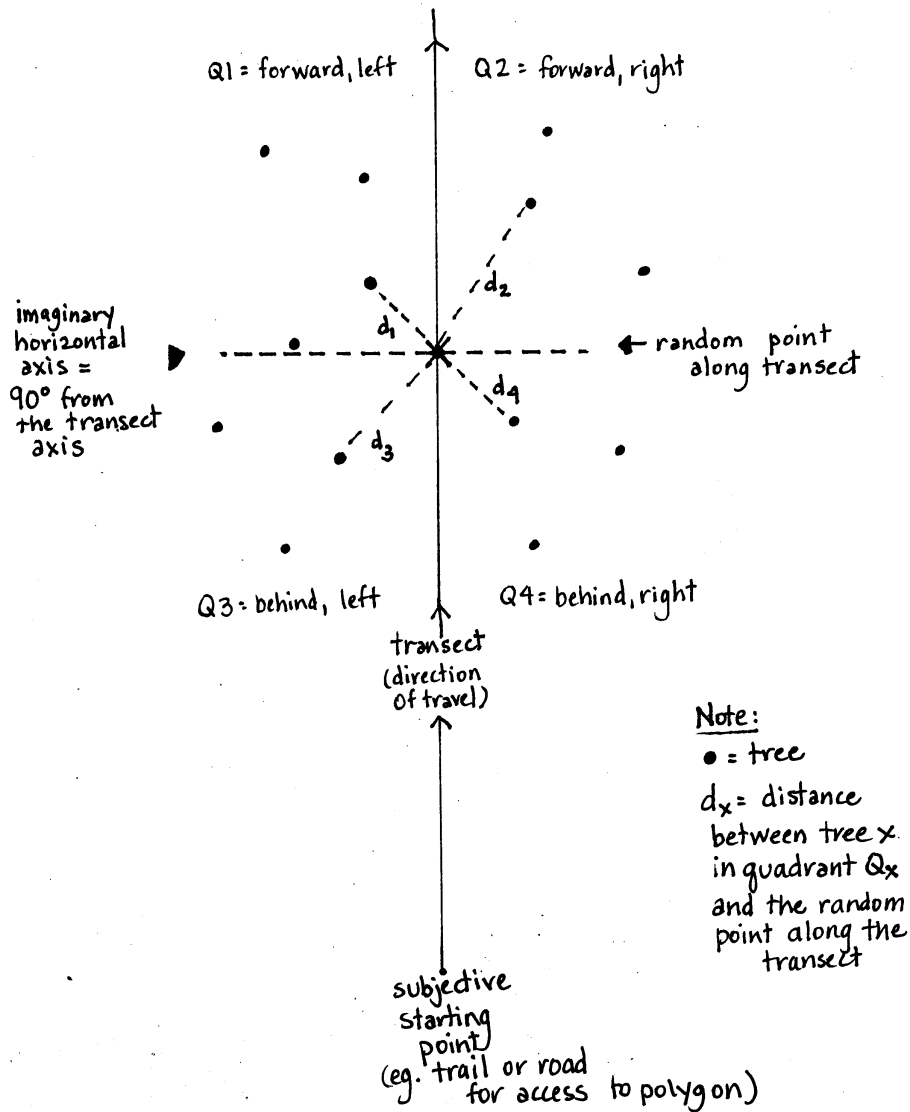 Q1 = forward, left
Q2 = forward, right
d2
imaginary
horizontal
axis =
90° from
the transect
axis
d1
random point
along transect
d4
d3
Q3 = behind, left
Q4 = behind, right
transect
(direction
of travel)
Note:
● = tree
dx = distance
between tree x
in quadrant Qx
and the random
point along the
transect
subjective
starting
point
(eg. trail or road
for access to polygon)